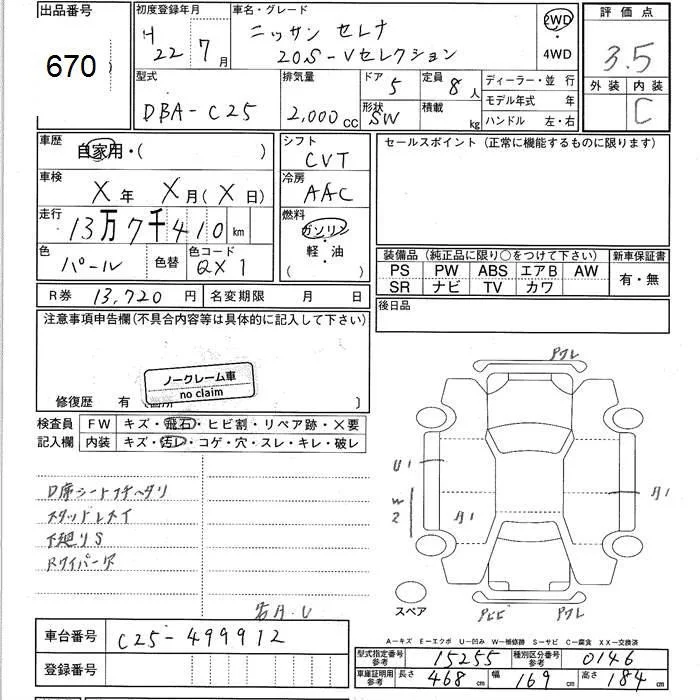 出品番号
670
初度登録年月
H
22年7月
車名・グレード
ニッサン セレナ
20S-Vセレクション
2WD
・
4WD
評価点
3.5
外装 内装
C
型式
DBA-C25
排気量
2,000cc
ドア 5
形状 SW
定員 8人
積載 kg
ディーラー・並行
モデル年式 年
ハンドル 左・右
車歴
自家用・( )
車検
X年 X月(X日)
走行
13万7千410km
色
パール
色替
色コード
QX1
シフト
CVT
冷房
AAC
燃料
ガソリン
軽・油
( )
セールスポイント(正常に機能するものに限ります)
装備品(純正品に限り○をつけて下さい)
PS PW ABS エアB AW
SR ナビ TV カワ
新車保証書
有・無
後日品
R券 13,720円 名変期限 月 日
注意事項申告欄(不具合内容等は具体的に記入して下さい)
ノークレーム車
no claim
修復歴 有
検査員
記入欄
FW キズ・飛石・ヒビ割・リペア跡・×要
内装 キズ・汚レ・コゲ・穴・スレ・キレ・破レ
D席シートフチヘタリ
下廻りS
アワレ
U1
W
2
スペア
A-キズ E-エクボ U-凹み W-補修跡 S-サビ C-腐食 XX-交換済
車台番号 C25-499912
登録番号
型式指定番号
参考
15255
種別区分番号
参考
0146
車庫証明用
参考
長さ 468cm 幅 169cm 高さ 184cm